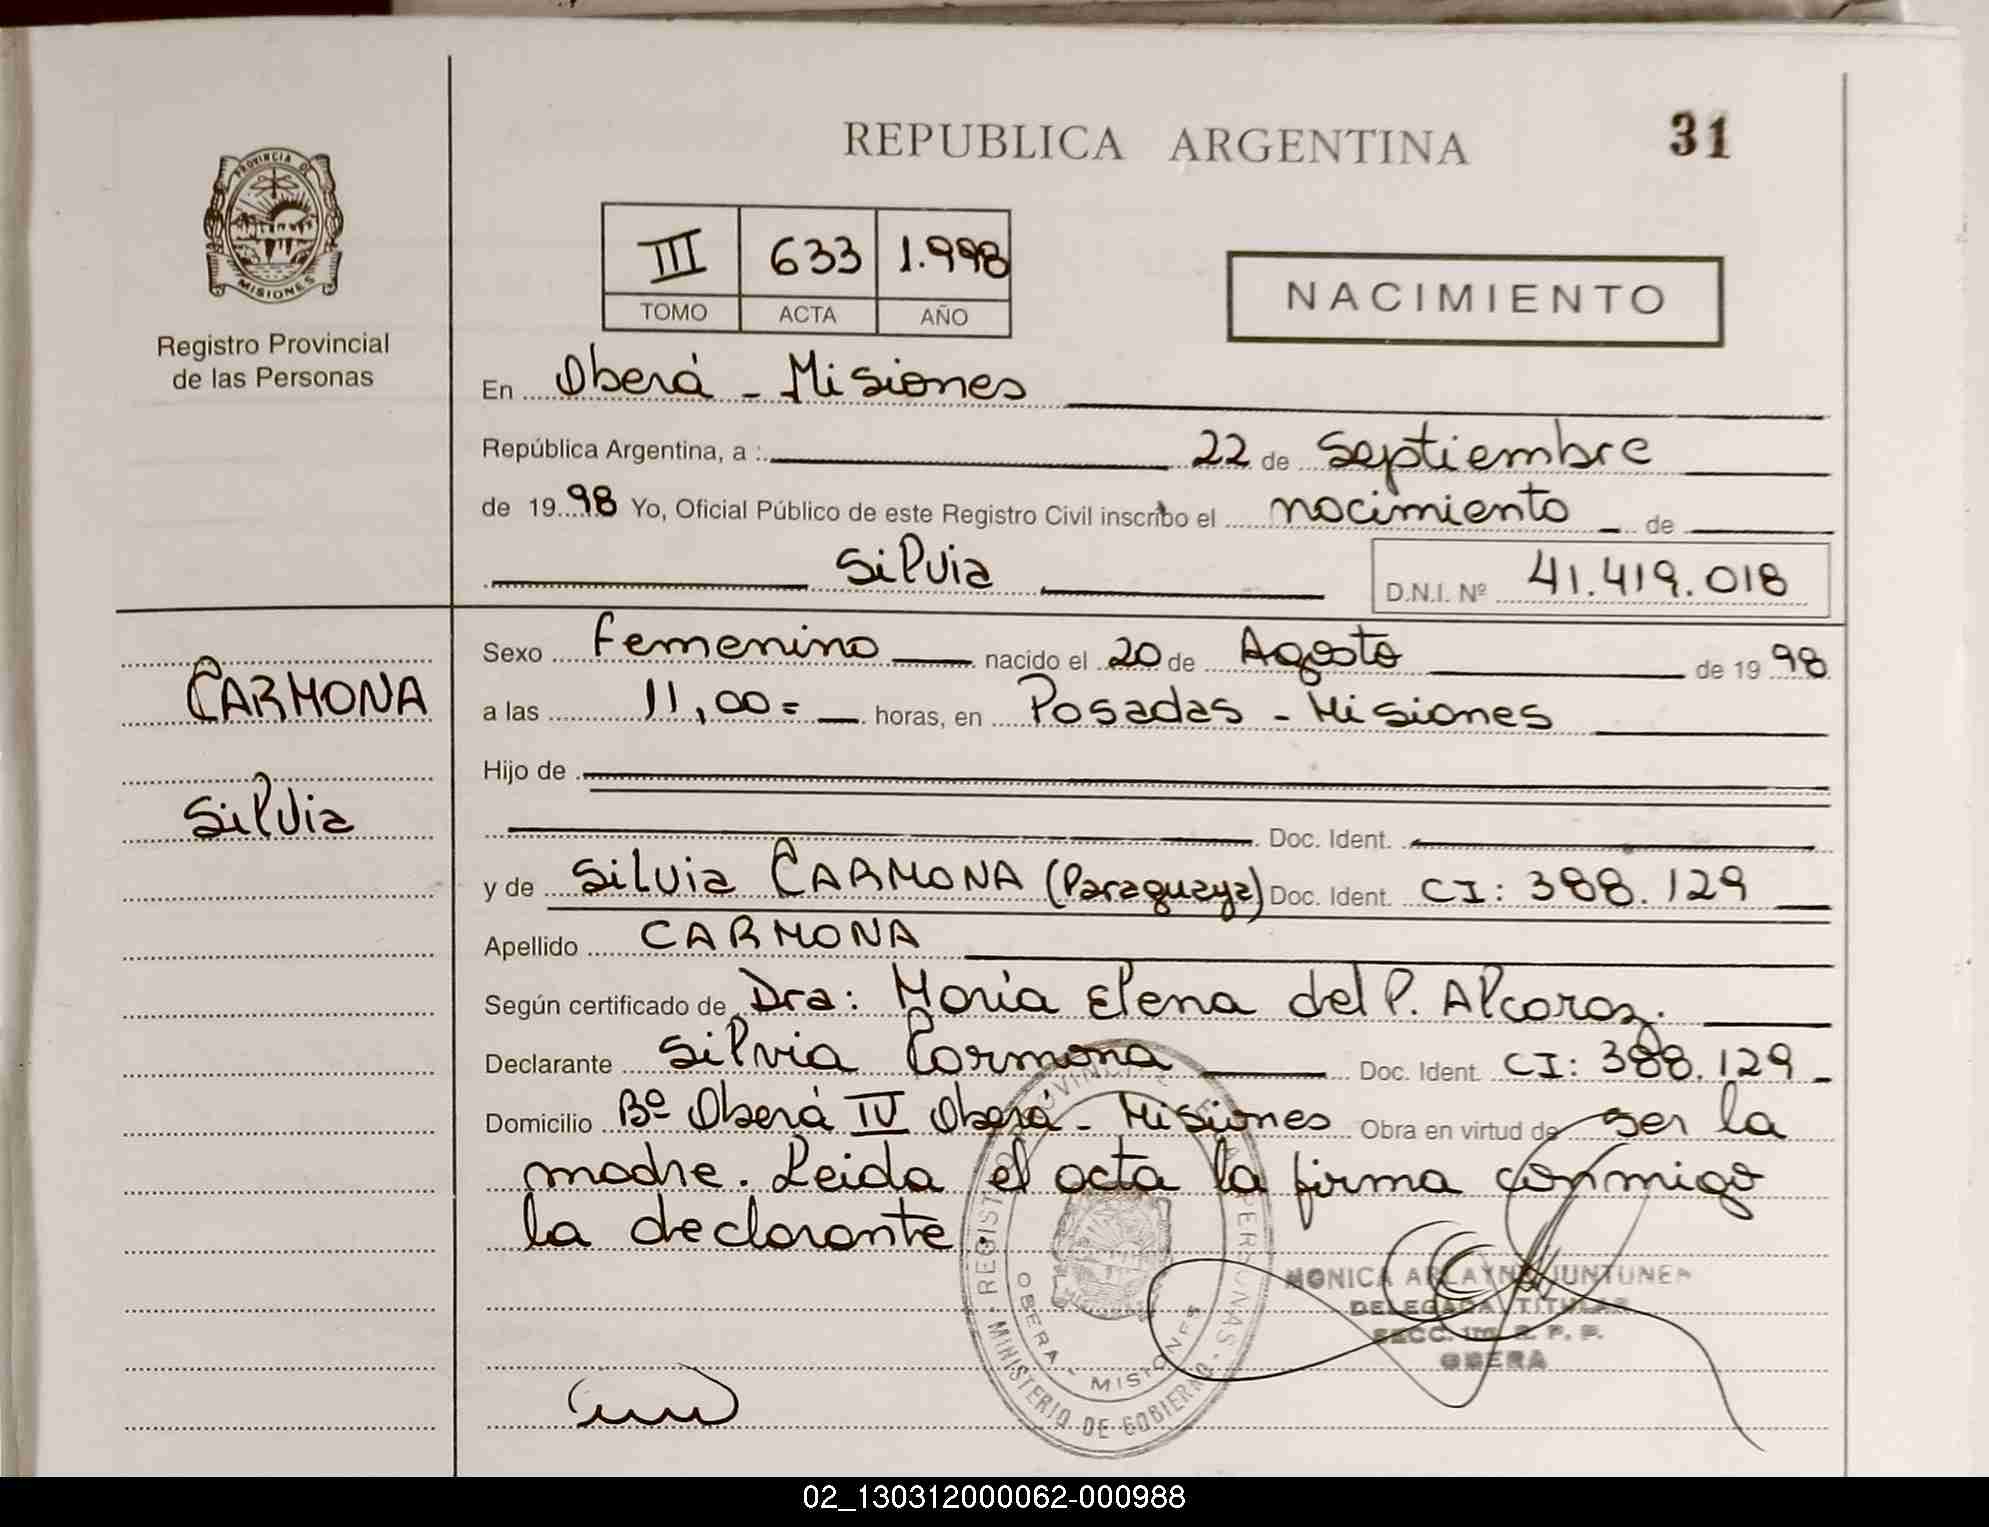 REPUBLICA ARGENTINA
31
PROVINCIA DE
MISIONES
Registro Provincial
de las Personas
III 633 1.998
TOMO ACTA AÑO
NACIMIENTO
En Oberá - Misiones
República Argentina, a : 22 de Septiembre
de 1998 Yo, Oficial Público de este Registro Civil inscribo el nacimiento de
Silvia D.N.I. Nº 41.419.018
CARMONA
Silvia
Sexo Femenino nacido el 20 de Agosto de 1998
a las 11,00= horas, en Posadas - Misiones
Hijo de
Doc. Ident.
y de Silvia CARMONA (Paraguaya) Doc. Ident. CI: 388.129
Apellido CARMONA
Según certificado de Dra: María Elena del P. Alcaraz.
Declarante Silvia Carmona Doc. Ident. CI: 388.129
Domicilio Bº Oberá IV Oberá - Misiones Obra en virtud de ser la
madre. Leida el acta la firma conmigo
la declarante.
REGISTRO PROVINCIAL DE LAS PERSONAS
MINISTERIO DE GOBIERNO
OBERA - MISIONES
MONICA ARLAYNE JUNTUNEN
DELEGADA TITULAR
SECC. R. P. P.
OBERA
02_130312000062-000988